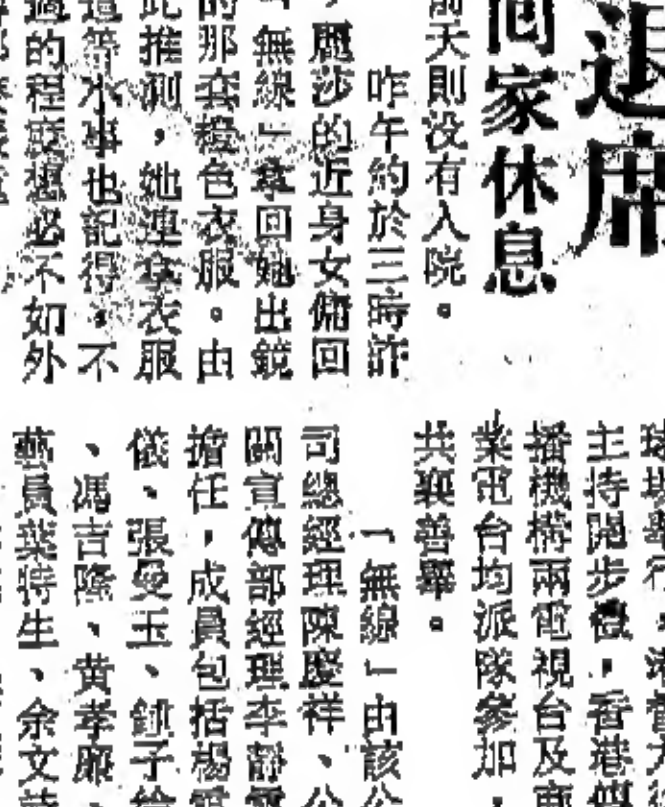 退席
回家休息
前天則没有入院。
咋午約於三時許
，麗莎的近身女傭回
「無線」拿回她出鏡
的那套橙色衣服。由
此推測，她連拿衣服
這等小事也記得，不
過的程度想必不如外
球場舉行，港督
主持開步禮，香港
播機構兩電視台及商
業電台均派隊參加，
共襄善舉。
「無線」由該公
司總經理陳慶祥、公
關宣傳部經理李靜
擔任，成員包括楊
儀、張曼玉、鍾子
、馮吉隆、黄孝廉、
藝員葉特生、余文詩